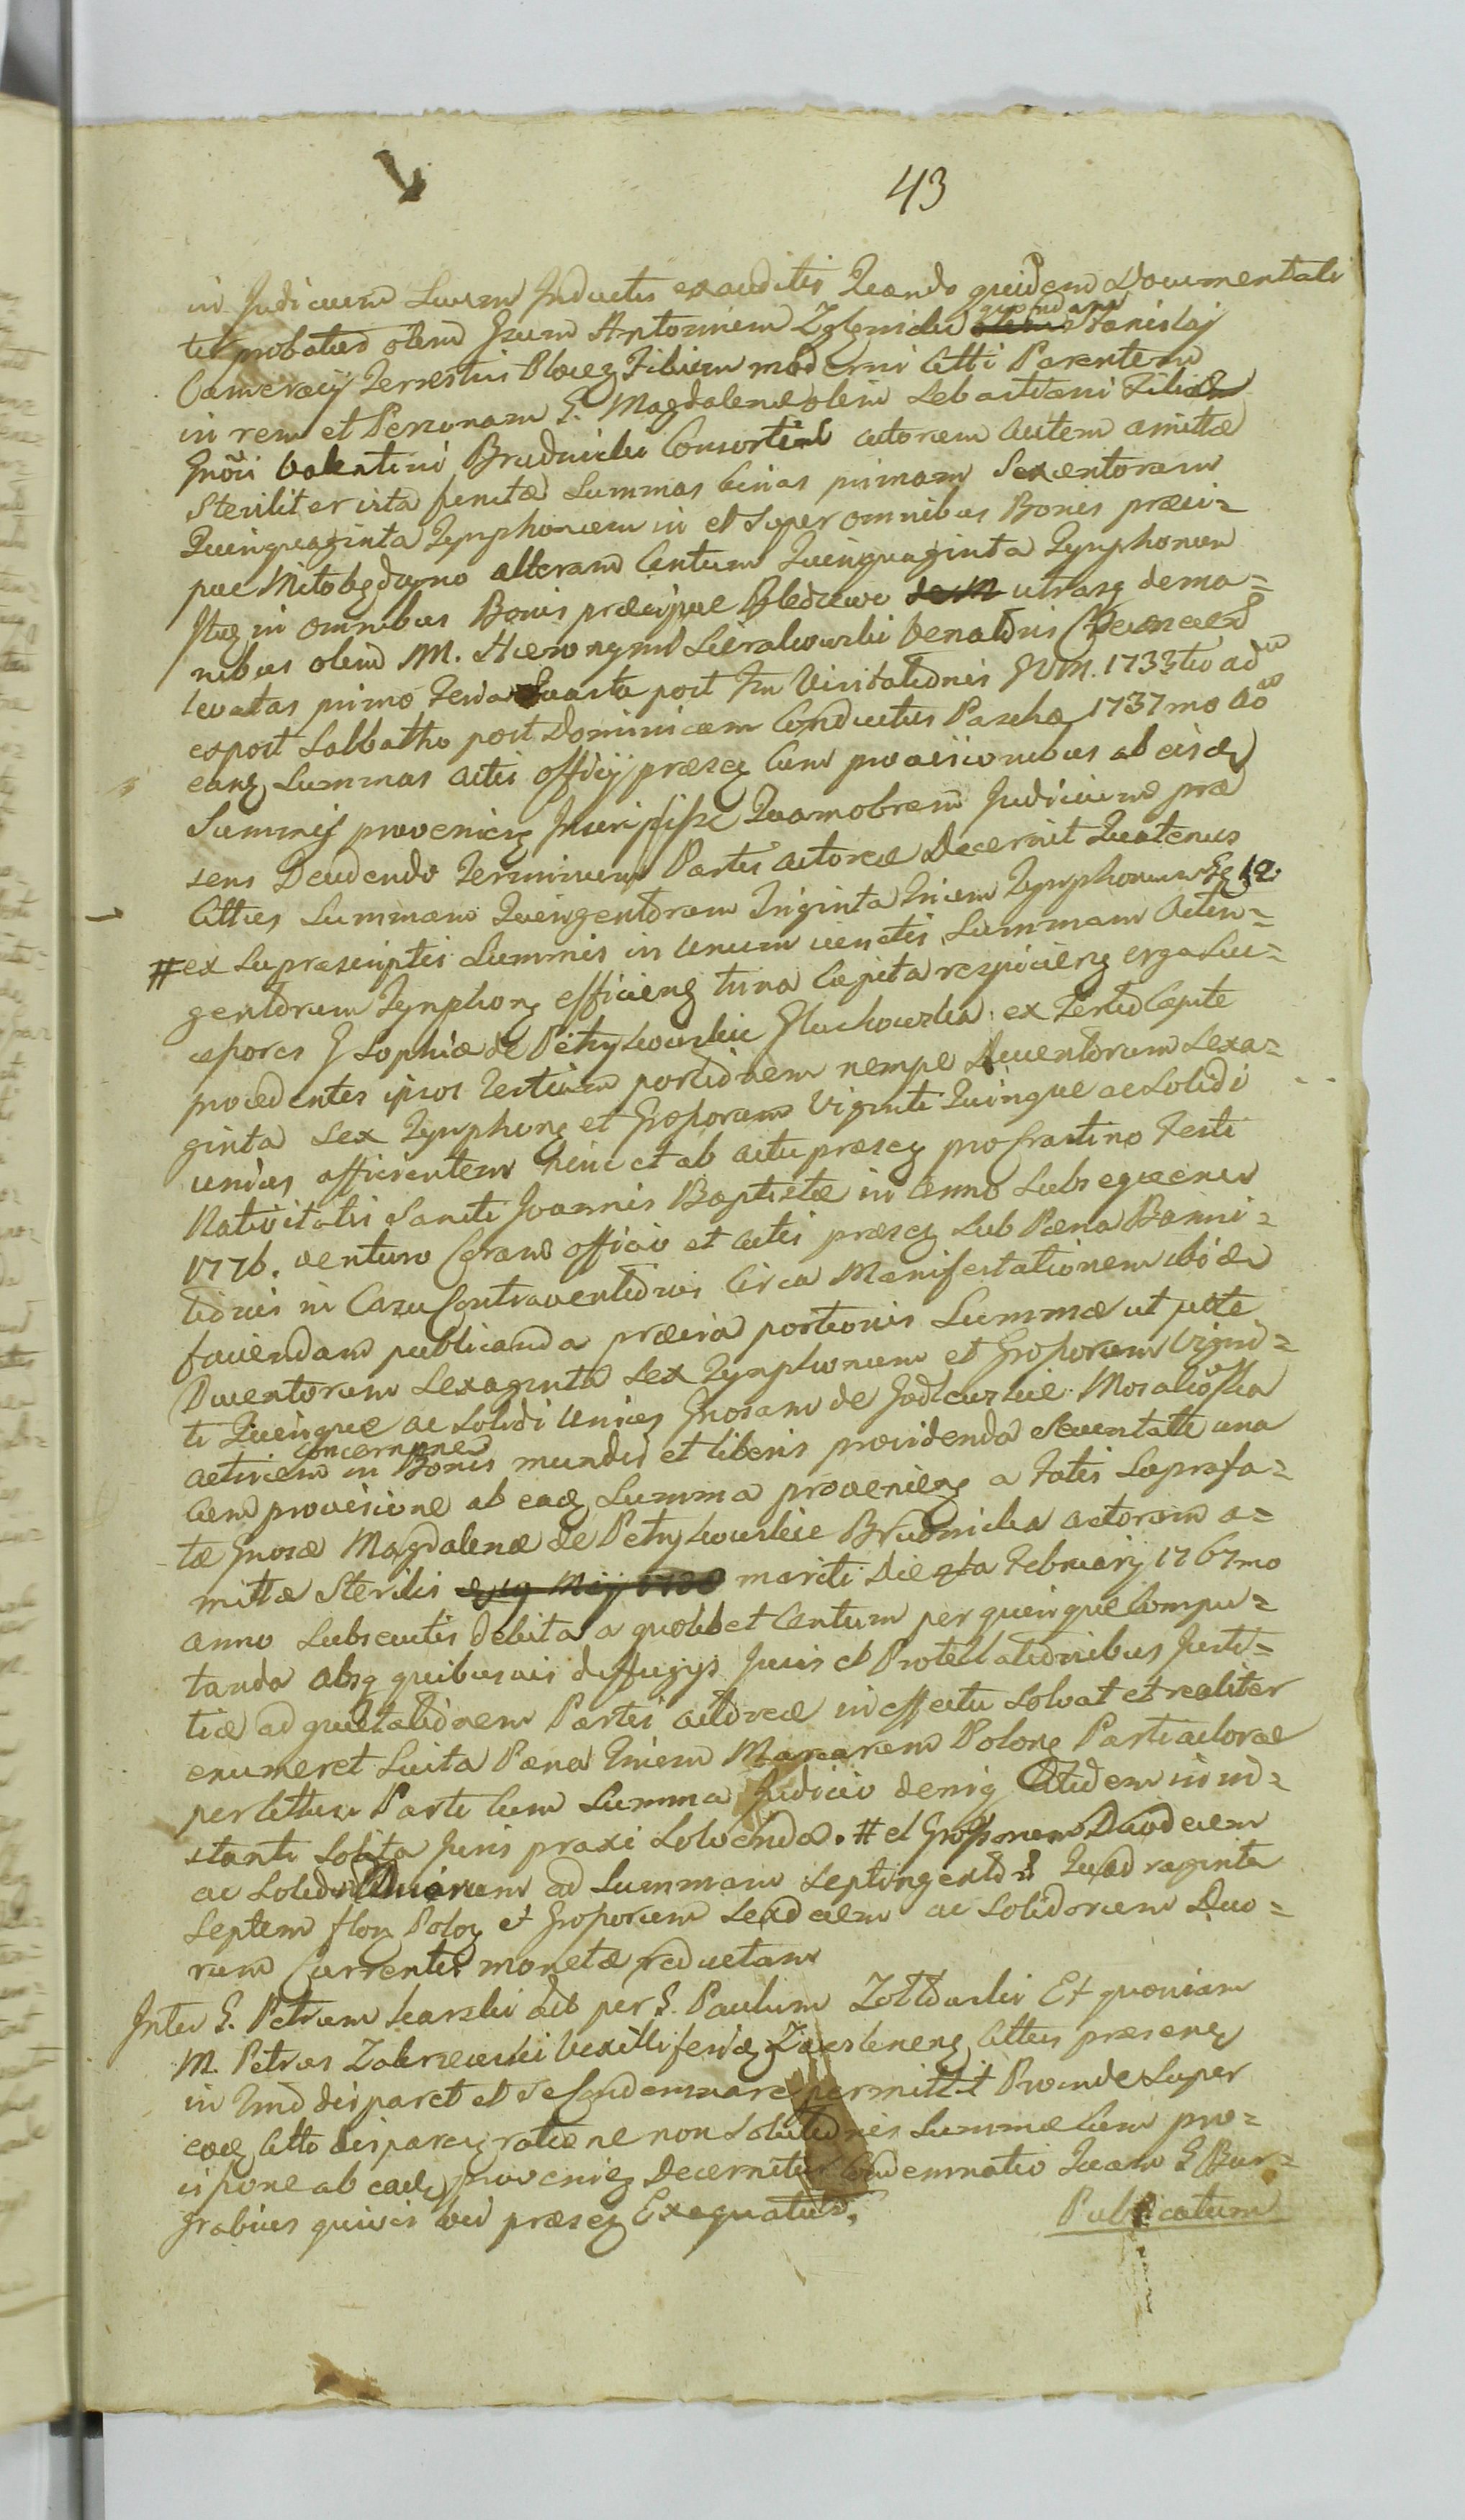 43
in Judicium Suum Inductis exauditis Quando quidem Documentali
ter probatur olim Gsum Antonium Zglenicki quondam Stanislai
Camerarij Terrestris Plocen Filium moderni Citti Parentem
in rem et Personam G. Magdalenæ olim Sebastiani Filiæ
Gnosi Valentini Brudnicki Consortis actoreæ autem amitæ
Steriliter ista functæ Summas binas primam Sexcentorum
Quinquaginta Tynphonum in et Super omnibus Bonis præci=
pue Mitobądzyno alteram Centum Quinquaginta Tynphonum
Itidem in omnibus Bonis præcipue utrasq de ma=
nibus olim M. Hieronymi Sierakowski
levatas primo Feria Quarta post Fm Visitationis BVM. 1733tio ad
ex post Sabbatho post Dominicam Conductus Paschæ 1737mo
easq Summas actis Officij præseg Cum provisionibus ab eisdem
Summis provenien Inscripsisse Quamobrem Judicium præ
sens Deudendo Terminum Partis actoreæ Decernit Quatenus
Cittus Summam Quingentorum Triginta Trium Tynphonum 12
# ex Suprascriptis Summis in Unum iunctis Summam Octin=
gentorum Tynphon efficieng trina Capita respicieng erga Suc=
cessores G Sophiæ de Petrykowskie Kluchowska ex Tertio Capite
procedentes ipsos Tertiam portionem nempe Ducentorum Sexa=
ginta Sex Tynphong et Grossorum Viginti Quinque ac Solidi
unius afficientem hinc et ab actu præseg pro Crastino Festi
Nativitatis Sancti Joannis Baptistæ in Anno Subsequenter
1776. venturo Coram officio et actis præseg Sub Pæna Banni=
tionis in Casu Contraventionis Circa Manifestationem ibidem
faciendam publicanda prævia portionis Summæ ut pote
Ducentorum Sexaginta Sex Tynphonum et Grossorum Vigin=
ti Quinque ac Solidi Unius Gnosam de Mosakowska
actricem concernens in Bonis mundis et liberis providenda Seventate una
Cum provisione ab eadem Summa provenieng a Fatis Suprafa=
tæ Gnosæ Magdalenæ de Petrykowskie Brudnicka actorum a=
mitæ Sterilis mariti Die 4ta Februarij 1767mo
anno Subsecutis debita a quolibet Centum per quinque Compu=
tanda absq quibusvis diffugijs Juris et Protestationibus Justi=
tiæ ad quietationem Partis actoreæ in effectu Solvat et realiter
enumeret Luita Pæna Trium Marcarum Polong Parti actoreæ
per Cittum Parti Cum Summa Judicio denig itidem in in=
stanti Solita Juris praxi Solvenda. # et Grossorum Duodecim
ac Solidi ad Summam Septingentor Quadraginta
Septem flor Polog et Grossorum Sexdecim ac Solidorum Duo=
rum Currentis monetæ reductam
Inter G. Petrum Karski act per G. Paulum Żółtowski Et quoniam
M. Petrus Zakrzewski Vexilliferidg Cittus præseng
in Tmo disparet et se Condemnare permittit Proinde Super
eodg Citto disparen ratione non Solutionis Summæ Cum pro=
visione ab eadem provenieng Decernitur Condemnatio Quam G Bur=
grabius quivis Vel præseg Exequatur.
Publicatum